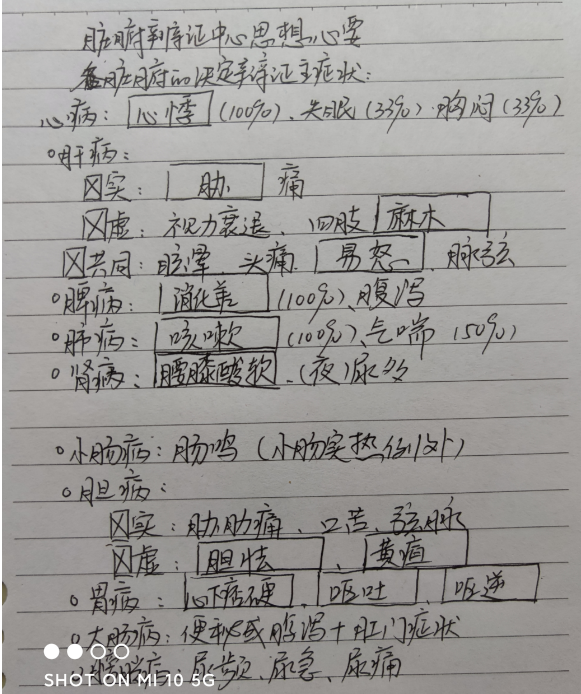 脏腑辨证中心思想、心要
各脏腑的决定辨证主症状：
心病：心悸(100%)、失眠(33%)、胸闷(33%)
肝病：
实：胁 痛
虚：视力衰退、四肢麻木
共同：眩晕、头痛、易怒、脉弦
脾病：消化差(100%)、腹泻
肺病：咳嗽(100%)、气喘(50%)
肾病：腰膝酸软、(夜)尿多
小肠病：肠鸣(小肠实热例外)
胆病：
实：胁肋痛、口苦、弦脉
虚：胆怯、黄疸
胃病：心下痞硬、呕吐、呃逆
大肠病：便秘或腹泻+肛门症状
膀胱病：尿频、尿急、尿痛
SHOT ON MI 10 5G